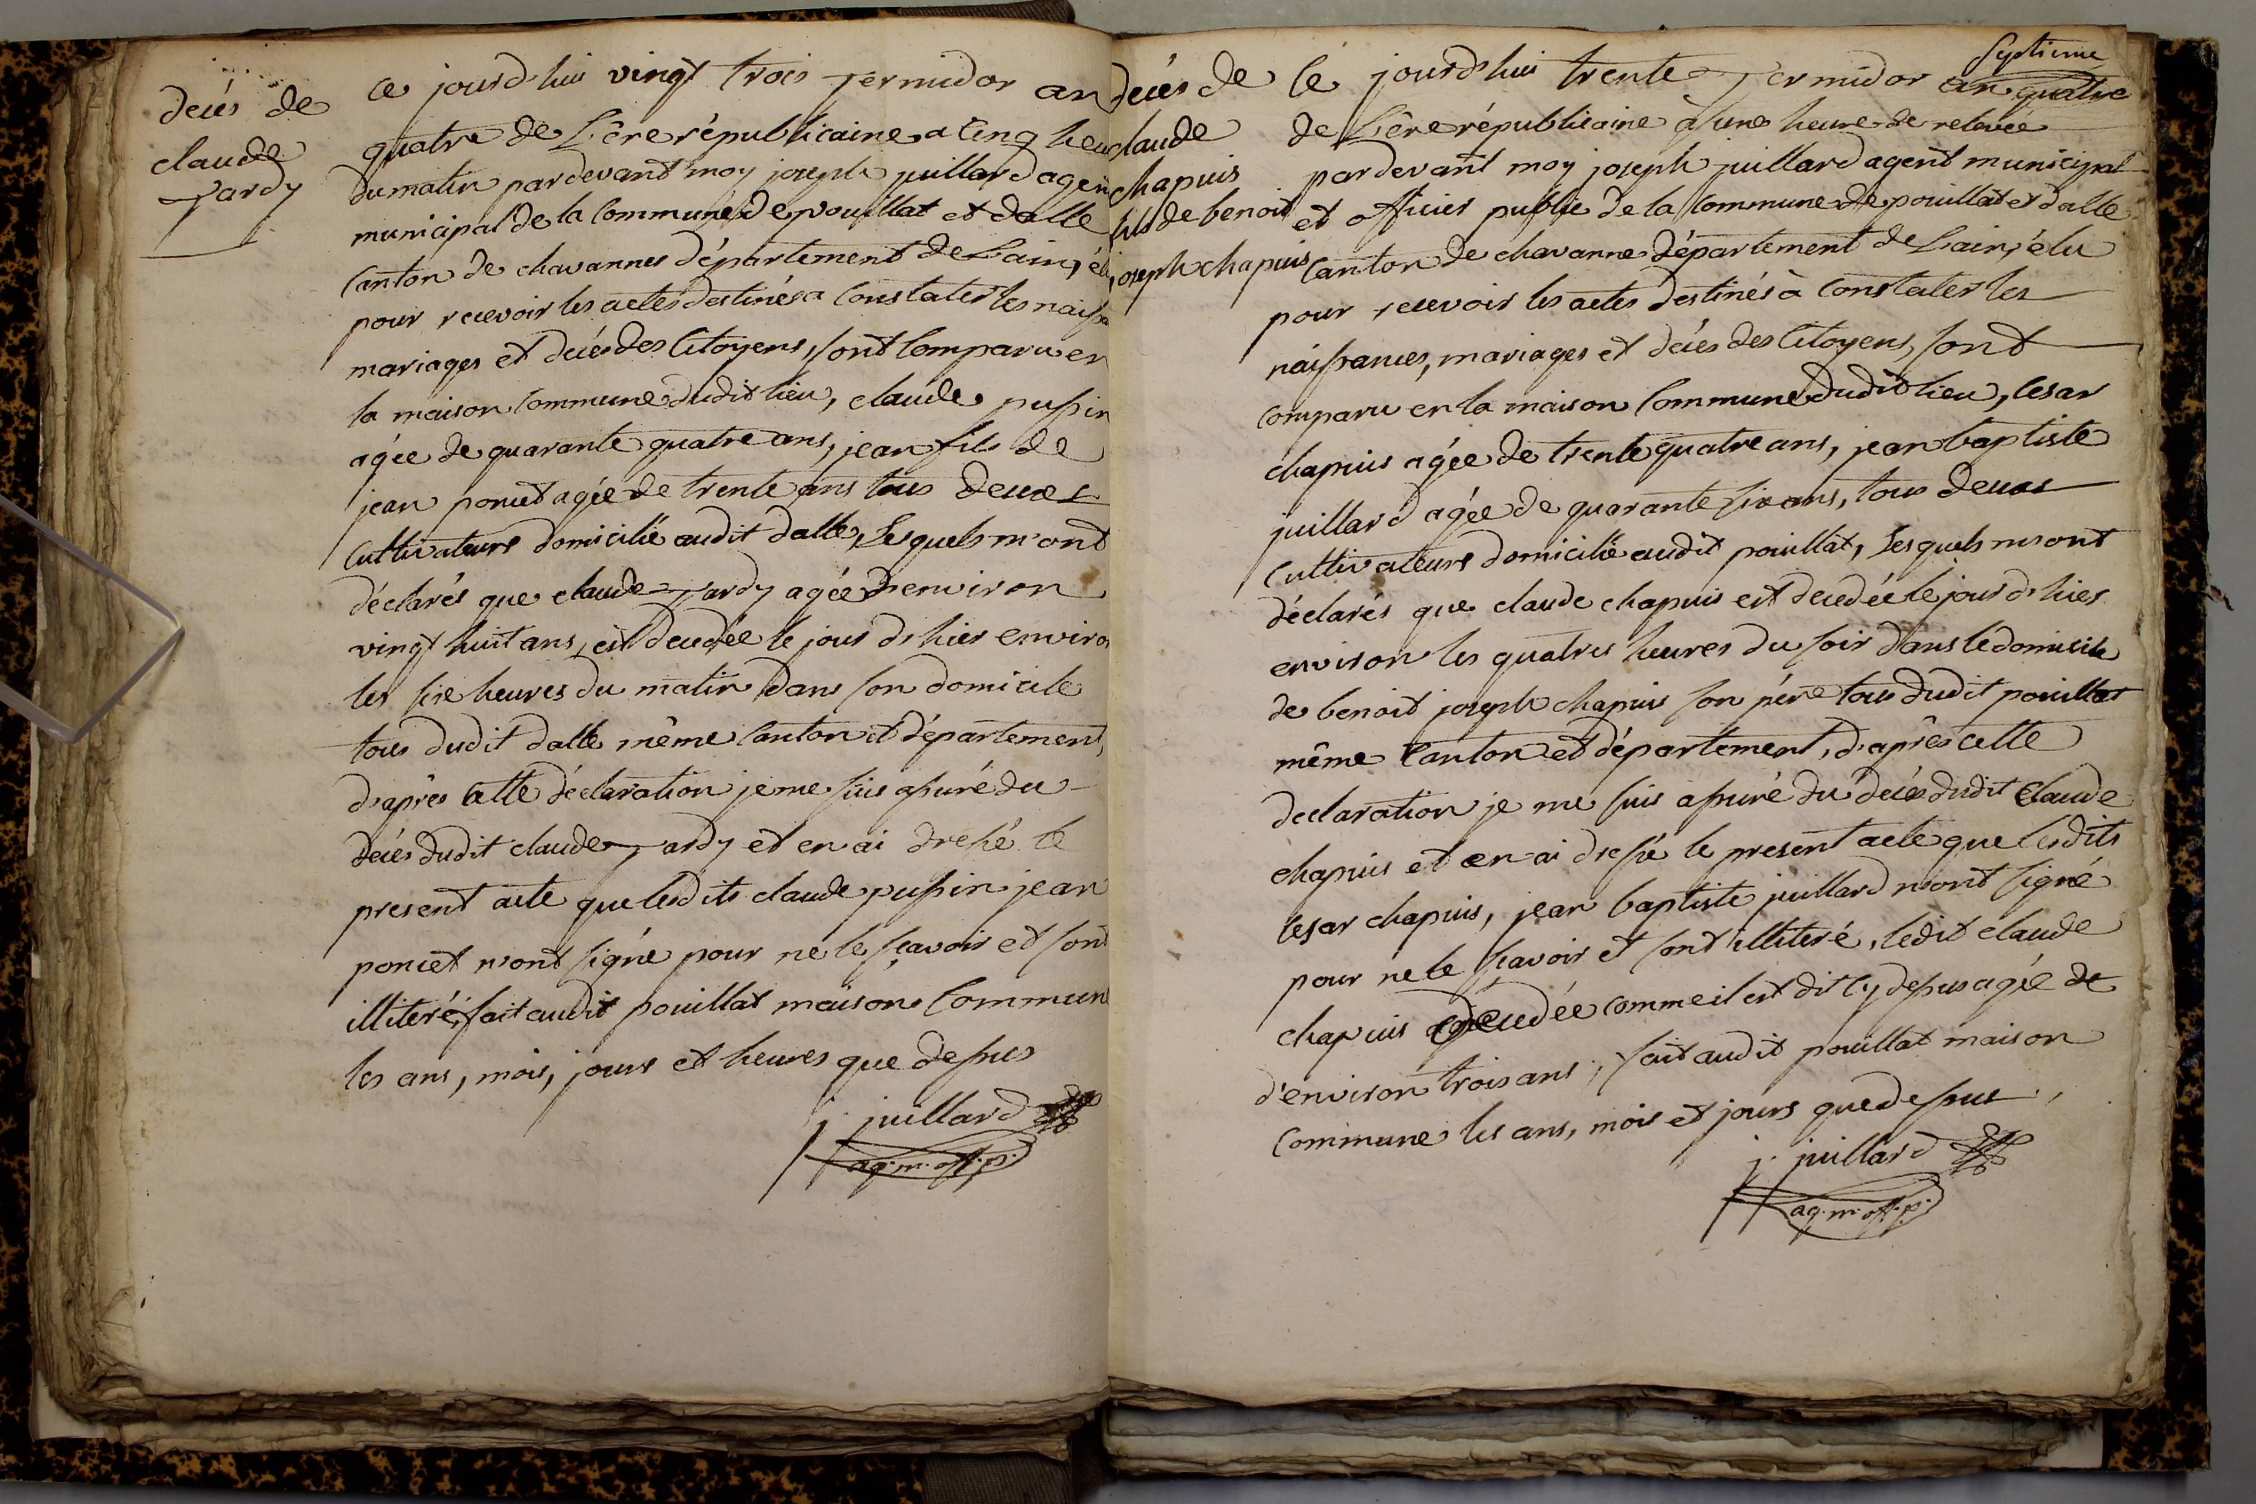 décés de
claude
yardy
ce jourd'hui vingt trois yermidor an
quatre de L'ère républicaine a Cinq heu
du matin pardevant moy joseph juillard agen
municipal de la Commune de pouillat et dalle
Canton de chavannes département de Lain, élu
pour recevoir les actes destinés a Constater les naissa
mariages et décés des Citoyens, sont Comparu en
la maison Commune dudit lieu, claude pussin
agée de quarante quatre ans, jean fils de
jean poncet agée de trente ans tous deux
Cultivateurs domicilié audit dalle, Lesquels m'ont
déclarés que claude yardy agée denviron
vingt huit ans, est decedée le jour d'hier enviro
les sixe heures du matin dans son domicile
tous dudit dalle même Canton et département,
d'aprês Cette déclaration je me suis assuré du
décés dudit claude yardy et en ai dressé le
present acte que lesdits claude pussin jean
poncet n'ont signé pour ne le sçavoir et sont
illiteré, fait audit pouillat maison Commune
les ans, mois, jours et heures que dessus
j. juillard
ag. m. off. p.
décés de
claude
chapuis
fils de benoit
joseph chapuis
Septieme
Ce jourd'hui trente yermidor an quatre
de L'ère républicaine a une heure de relevée
pardevant moy joseph juillard agent municipal
et officier public de la Commune de pouillat et dalle
Canton de chavanne département de Lain, élu
pour recevoir les actes destinés à Constater les
naissances, mariages et décés des Citoyens, sont
Comparu en la maison Commune dudit lieu, Cesar
chapuis agée de trente quatre ans, jean baptiste
juillard agée de quarante six ans, tous deux
Cultivateurs domicilié audit pouillat, Lesquels m'ont
déclarés que claude chapuis est decedée le jour d'hier
environ les quatres heures du soir dans le domicile
de benoit joseph chapuis son père tous dudit pouillat
même Canton et département, d'aprês cette
declaration je me suis assuré du décés dudit Claude
chapuis et en ai dressé le present acte que lesdits
Cesar chapuis, jean baptiste juillard n'ont signé
pour ne le sçavoir et sont illiteré, ledit claude
chapuis decedée comme il est dit Cy dessus agée de
d'environ trois ans, fait audit pouillat maison
Commune les ans, mois et jours que dessus
j. juillard
ag. m. off. p.